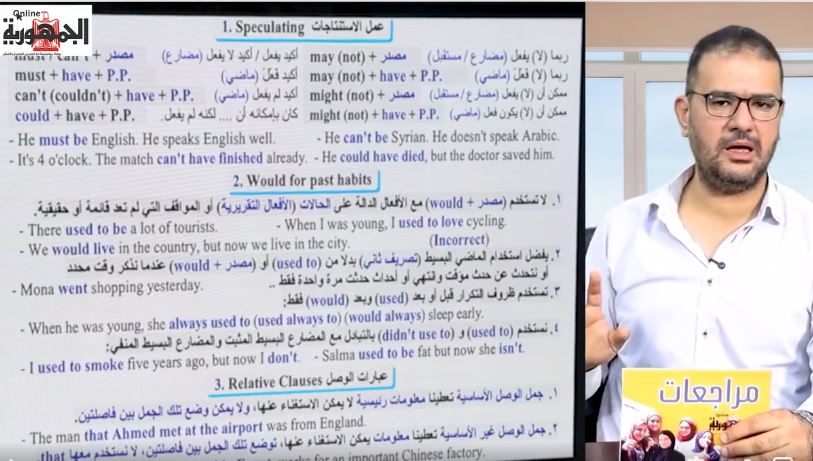 Online
الجمهورية
1. Speculating عمل الاستنتاجات
must / can't + مصدر أكيد يفعل / أكيد لا يفعل (مضارع) may (not) + مصدر ربما (لا) يفعل (مضارع / مستقبل)
must + have + P.P. أكيد فعّل (ماضي) may (not) + have + P.P. ربما (لا) فعّل (ماضي)
can't (couldn't) + have + P.P. أكيد لم يفعل (ماضي) might (not) + مصدر ممكن أن (لا) يفعل (مضارع / مستقبل)
could + have + P.P. كان بإمكانه أن .... لكنه لم يفعل. might (not) + have + P.P. ممكن أن (لا) يكون فعل (ماضي)
- He must be English. He speaks English well. - He can't be Syrian. He doesn't speak Arabic.
- It's 4 o'clock. The match can't have finished already. - He could have died, but the doctor saved him.
2. Would for past habits
١. لا تستخدم (would + مصدر) مع الأفعال الدالة على الحالات (الأفعال التقريرية) أو المواقف التي لم تعد قائمة أو حقيقية.
- There used to be a lot of tourists. - When I was young, I used to love cycling.
- We would live in the country, but now we live in the city. (Incorrect)
٢. يفضل استخدام الماضي البسيط (تصريف ثاني) بدلا من (used to) أو (would + مصدر) عندما نذكر وقت محدد
أو نتحدث عن حدث مؤقت وانتهي أو أحداث حدثت مرة واحدة فقط ..
- Mona went shopping yesterday.
٣. تستخدم ظروف التكرار قبل أو بعد (used) وبعد (would) فقط:
- When he was young, she always used to (used always to) (would always) sleep early.
٤. نستخدم (used to) و (didn't use to) بالتبادل مع المضارع البسيط المثبت والمضارع البسيط المنفي:
- I used to smoke five years ago, but now I don't. - Salma used to be fat but now she isn't.
3. Relative Clauses عبارات الوصل
١. جمل الوصل الأساسية تعطينا معلومات رئيسية لا يمكن الاستغناء عنها، ولا يمكن وضع تلك الجمل بين فاصلتين.
- The man that Ahmed met at the airport was from England.
٢. جمل الوصل غير الأساسية تعطينا معلومات يمكن الاستغناء عنها، توضع تلك الجمل بين فاصلتين، لا نستخدم معها that
works for an important Chinese factory.
مراجعات
الجمهورية